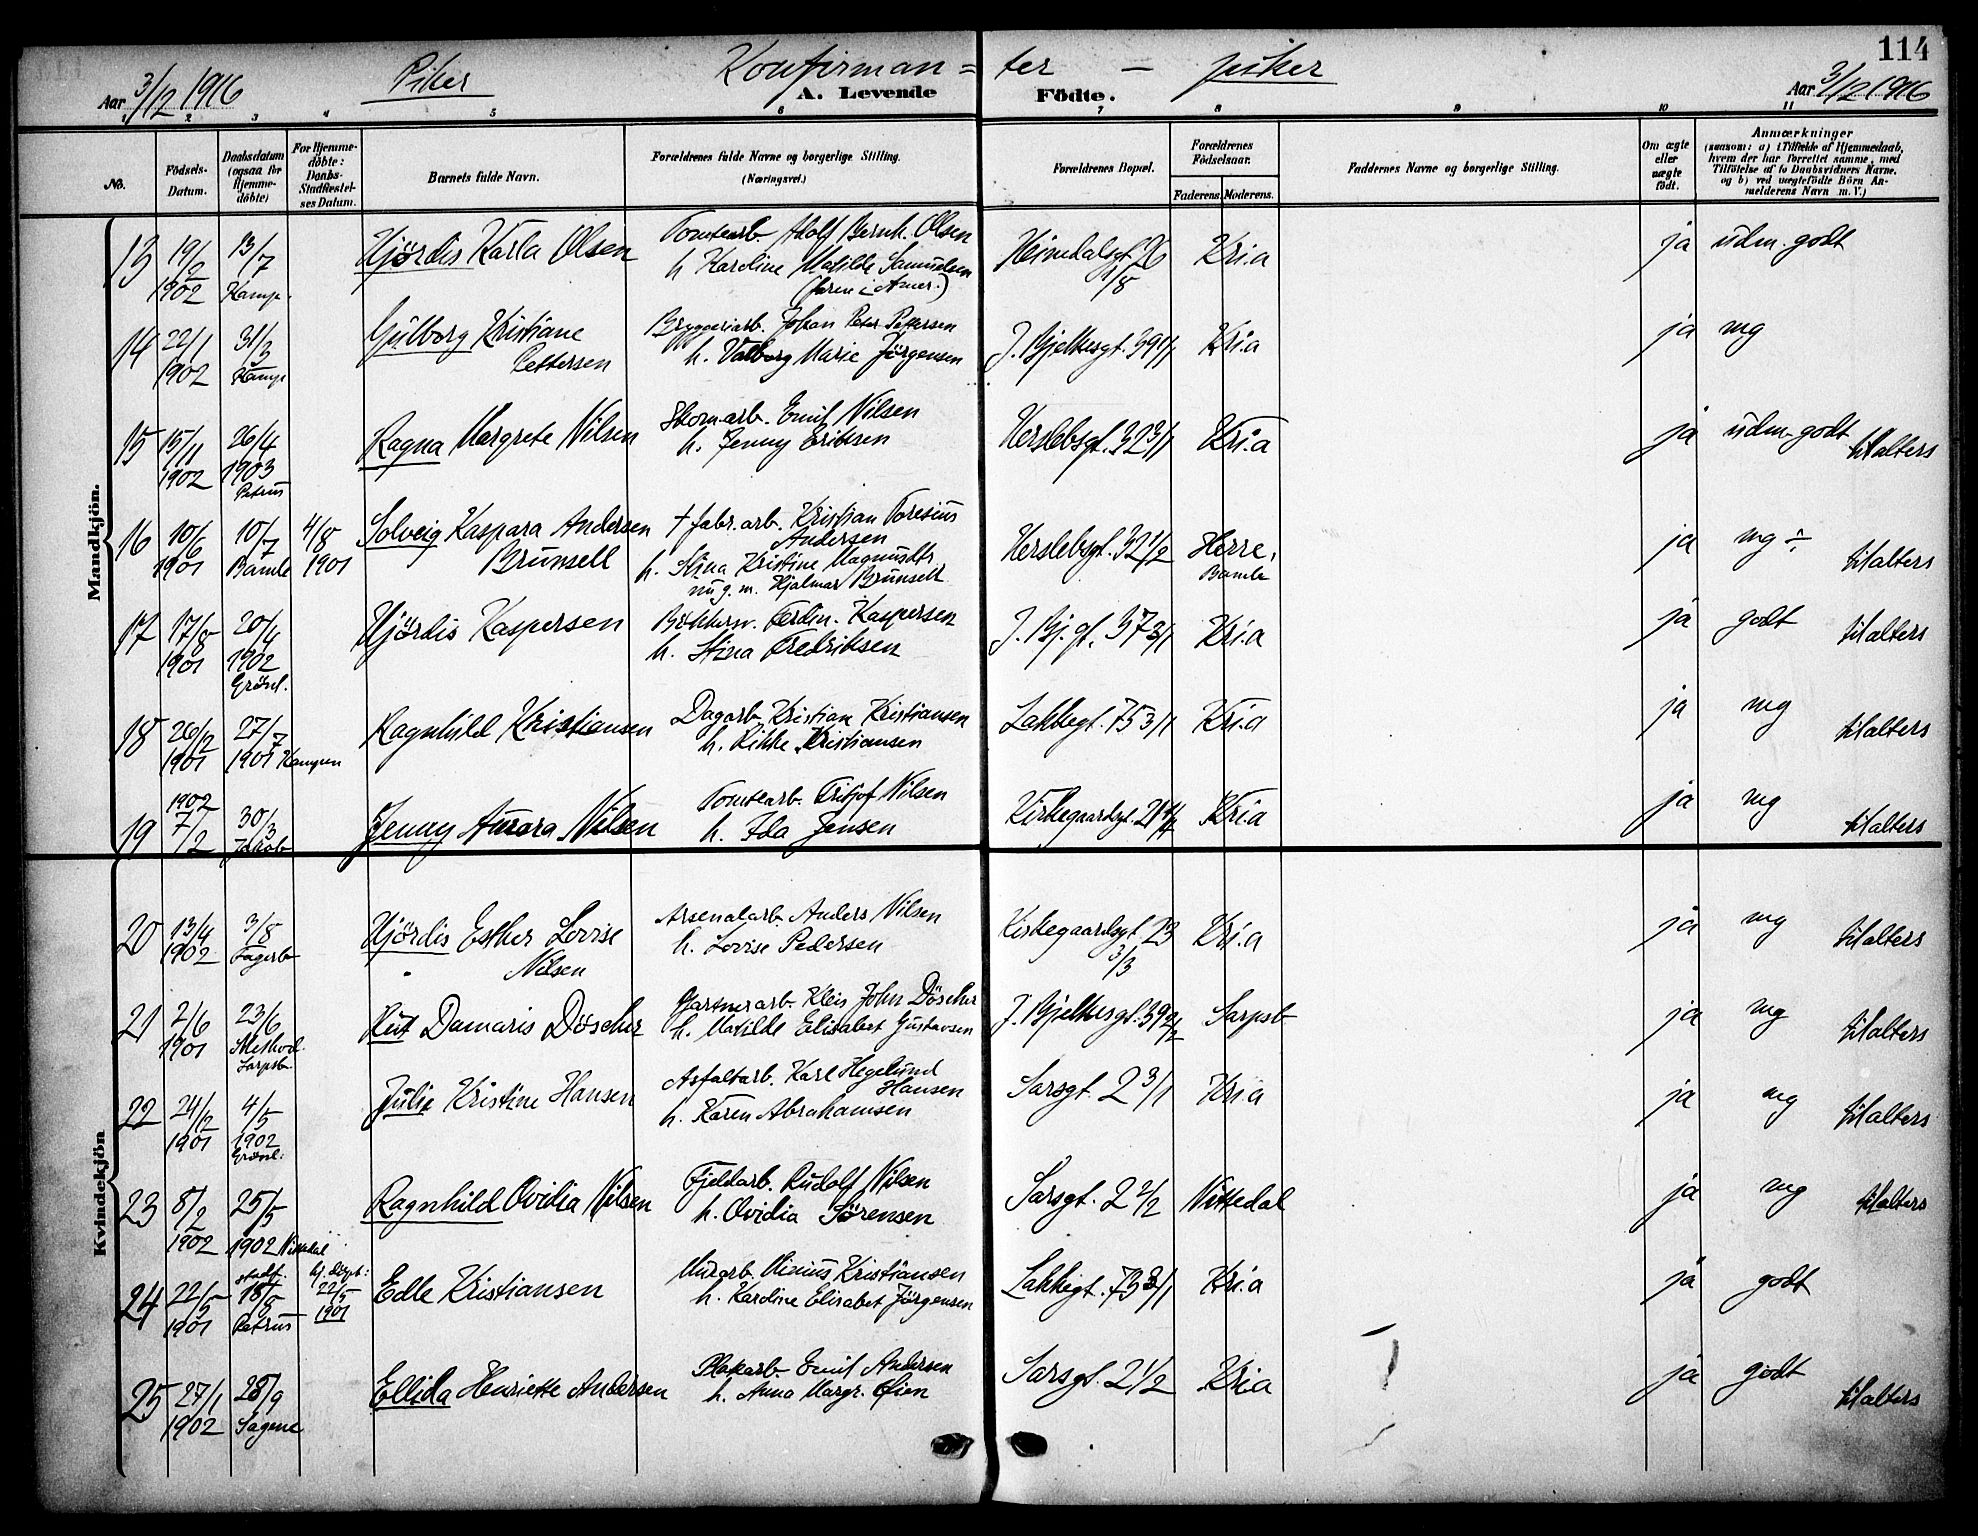 114
Aar 3/12 1916 Piker Konfirman= ter — piker Aar 3/12 1916
A. Levende Födte.
1 2 3 4 5 6 7 8 9 10 11
No. Födsels-Datum. Daabsdatum (ogsaa for Hjemme-döbte) For Hjemme-döbte: Daabs-Stadfæstel-ses Datum. Barnets fulde Navn. Forældrenes fulde Navne og borgerlige Stilling. (Næringsvei.) Forældrenes Bopæl. Forældrenes Födselsaar. Faderens. Moderens. Faddernes Navne og borgerlige Stilling. Om ægte eller uægte födt. Anmærkninger (saasom: a) i Tilfælde af Hjemmedaab, hvem der har forrettet samme, med Tilföielse af to Daabsvidners Navne. og b) ved uægtefödte Börn An-melderens Navn m. V.)
Mandkjön.
13 19/2 13/7 Hjördis Karla Olsen Tomtearb. Adolf Bernh. Olsen Heimdalsgt. 26 Kria ja udm. godt
1902 Kamp. h. Karoline Matilde Samuelsen 1/8
(faren i Amer.)
14 22/1 31/3 Gulborg Kristiane Bryggeriarb. Johan Peter Pettersen J. Bjelkesgt. 39 1/1 Kria ja mg
1902 Kamp Pettersen h. Valborg Marie Jörgensen
15 15/11 26/4 Ragna Margrete Nilsen Skomarb. Emil Nilsen Herslebsgt. 32 3/1 Kria ja udm. godt til alters
1902 1903 h. Jenny Eriksen
Petrus
16 10/6 10/7 4/8 Solveig Kaspara Andersen † fabr. arb. Kristian Toresius Herslebsgt. 32 1/2 Herre, ja mg ÷ til alters
1901 Bamle 1901 Brunsell Andersen Bamle
h. Stina Kristine Magnusdtr
nu g. m. Hjalmar Brunsell
17 17/8 20/4 Hjördis Kaspersen Bökkersv. Ferdin. Kaspersen J. Bj. gt. 37 3/1 Kria ja godt til alters
1901 1902 h. Stina Fredriksen
Grönl.
18 26/2 27/7 Ragnhild Kristiansen Dagarb. Kristian Kristiansen Lakkegt. 75 3/1 Kria ja mg til alters
1901 1901 Kampen h. Rikke Kristiansen
1902
19 7/2 30/3 Jenny Aurora Nilsen Tomtearb. Fritjof Nilsen Kirkegaardsgt. 21 4/4 Kria ja mg til alters
Jakob h. Ida Jensen
Kvindekjön
20 13/4 3/8 Hjördis Esther Lovise Arsenalarb. Anders Nilsen Kirkegaardsgt. 23 Kria ja mg til alters
1902 Fagerb Nilsen h. Lovise Pedersen 3/3
21 2/6 23/6 Rut Damaris Döscher Gartnerarb. Kleis John Döscher J. Bjelkesgt. 39 2/2 Sarpsb ja mg til alters
1901 Method. h. Matilde Elisabet Gustavsen
Sarpsb.
22 24/12 4/5 Julie Kristine Hansen Asfaltarb. Karl Hegelund Sarsgt. 2 3/1 Kria ja mg til alters
1901 1902 Hansen
Grönl. h. Karen Abrahamsen
23 8/2 25/5 Ragnhild Ovidia Nilsen Fjeldarb. Rudolf Nilsen Sarsgt. 2 2/2 Nittedal ja mg til alters
1902 1902 Nittedal h. Ovidia Sörensen
stadf. hj. döpt:
24 22/5 18/8 22/5 Edle Kristiansen Murarb. Kristiansen Lakkegt. 73 3/1 Kria ja godt
1901 Petrus 1901 h. Karoline Elisabet Jörgensen
25 27/1 28/9 Ellida Henriette Andersen Emil Andersen Sarsgt. 2 1/2 Kria ja godt til alters
1902 Sagene h. Anna Margr.